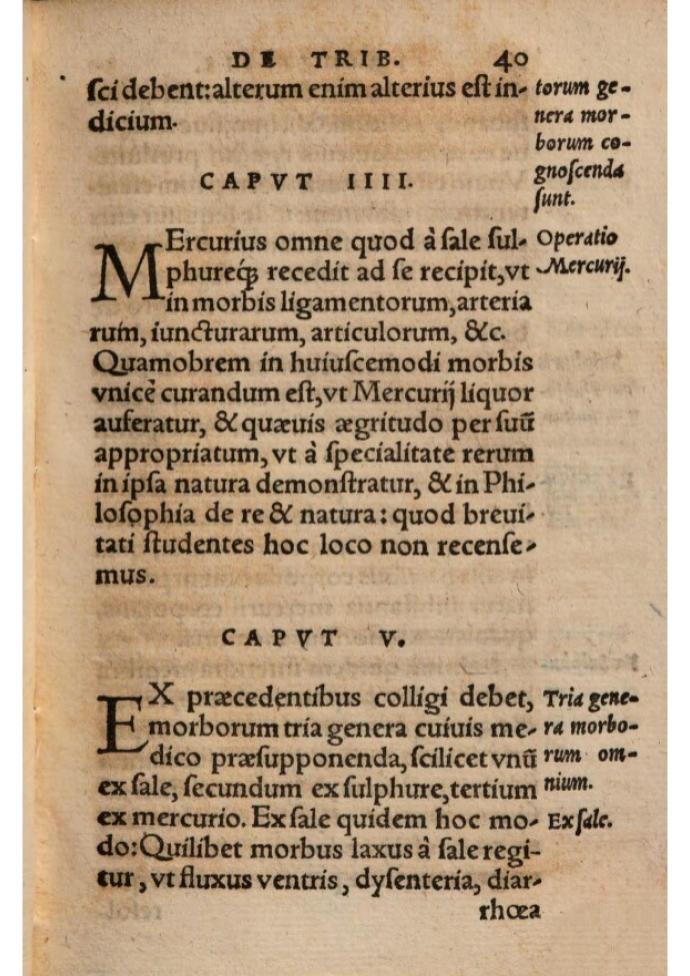 DE TRIB. 40
ſci debent: alterum enim alterius eſt in-
dicium.
torum ge-
nera mor-
borum co-
gnoſcenda
ſunt.
CAPVT IIII.
MErcurius omne quod à ſale ſul-
phureq́; recedit ad ſe recipit, vt
in morbis ligamentorum, arteria
rum, iuncturarum, articulorum, &c.
Operatio
Mercurij.
Quamobrem in huiuſcemodi morbis
vnicè curandum eſt, vt Mercurij liquor
auferatur, & quæuis ægritudo per ſuū
appropriatum, vt à ſpecialitate rerum
in ipſa natura demonſtratur, & in Phi-
loſophia de re & natura: quod breui-
tati ſtudentes hoc loco non recenſe-
mus.
CAPVT V.
EX præcedentibus colligi debet,
morborum tria genera cuiuis me-
dico præſupponenda, ſcilicet vnū
ex ſale, ſecundum ex ſulphure, tertium
ex mercurio. Ex ſale quidem hoc mo-
do: Quilibet morbus laxus à ſale regi-
tur, vt fluxus ventris, dyſenteria, diar-
rhœa
Tria gene-
ra morbo-
rum om-
nium.
Ex ſale.